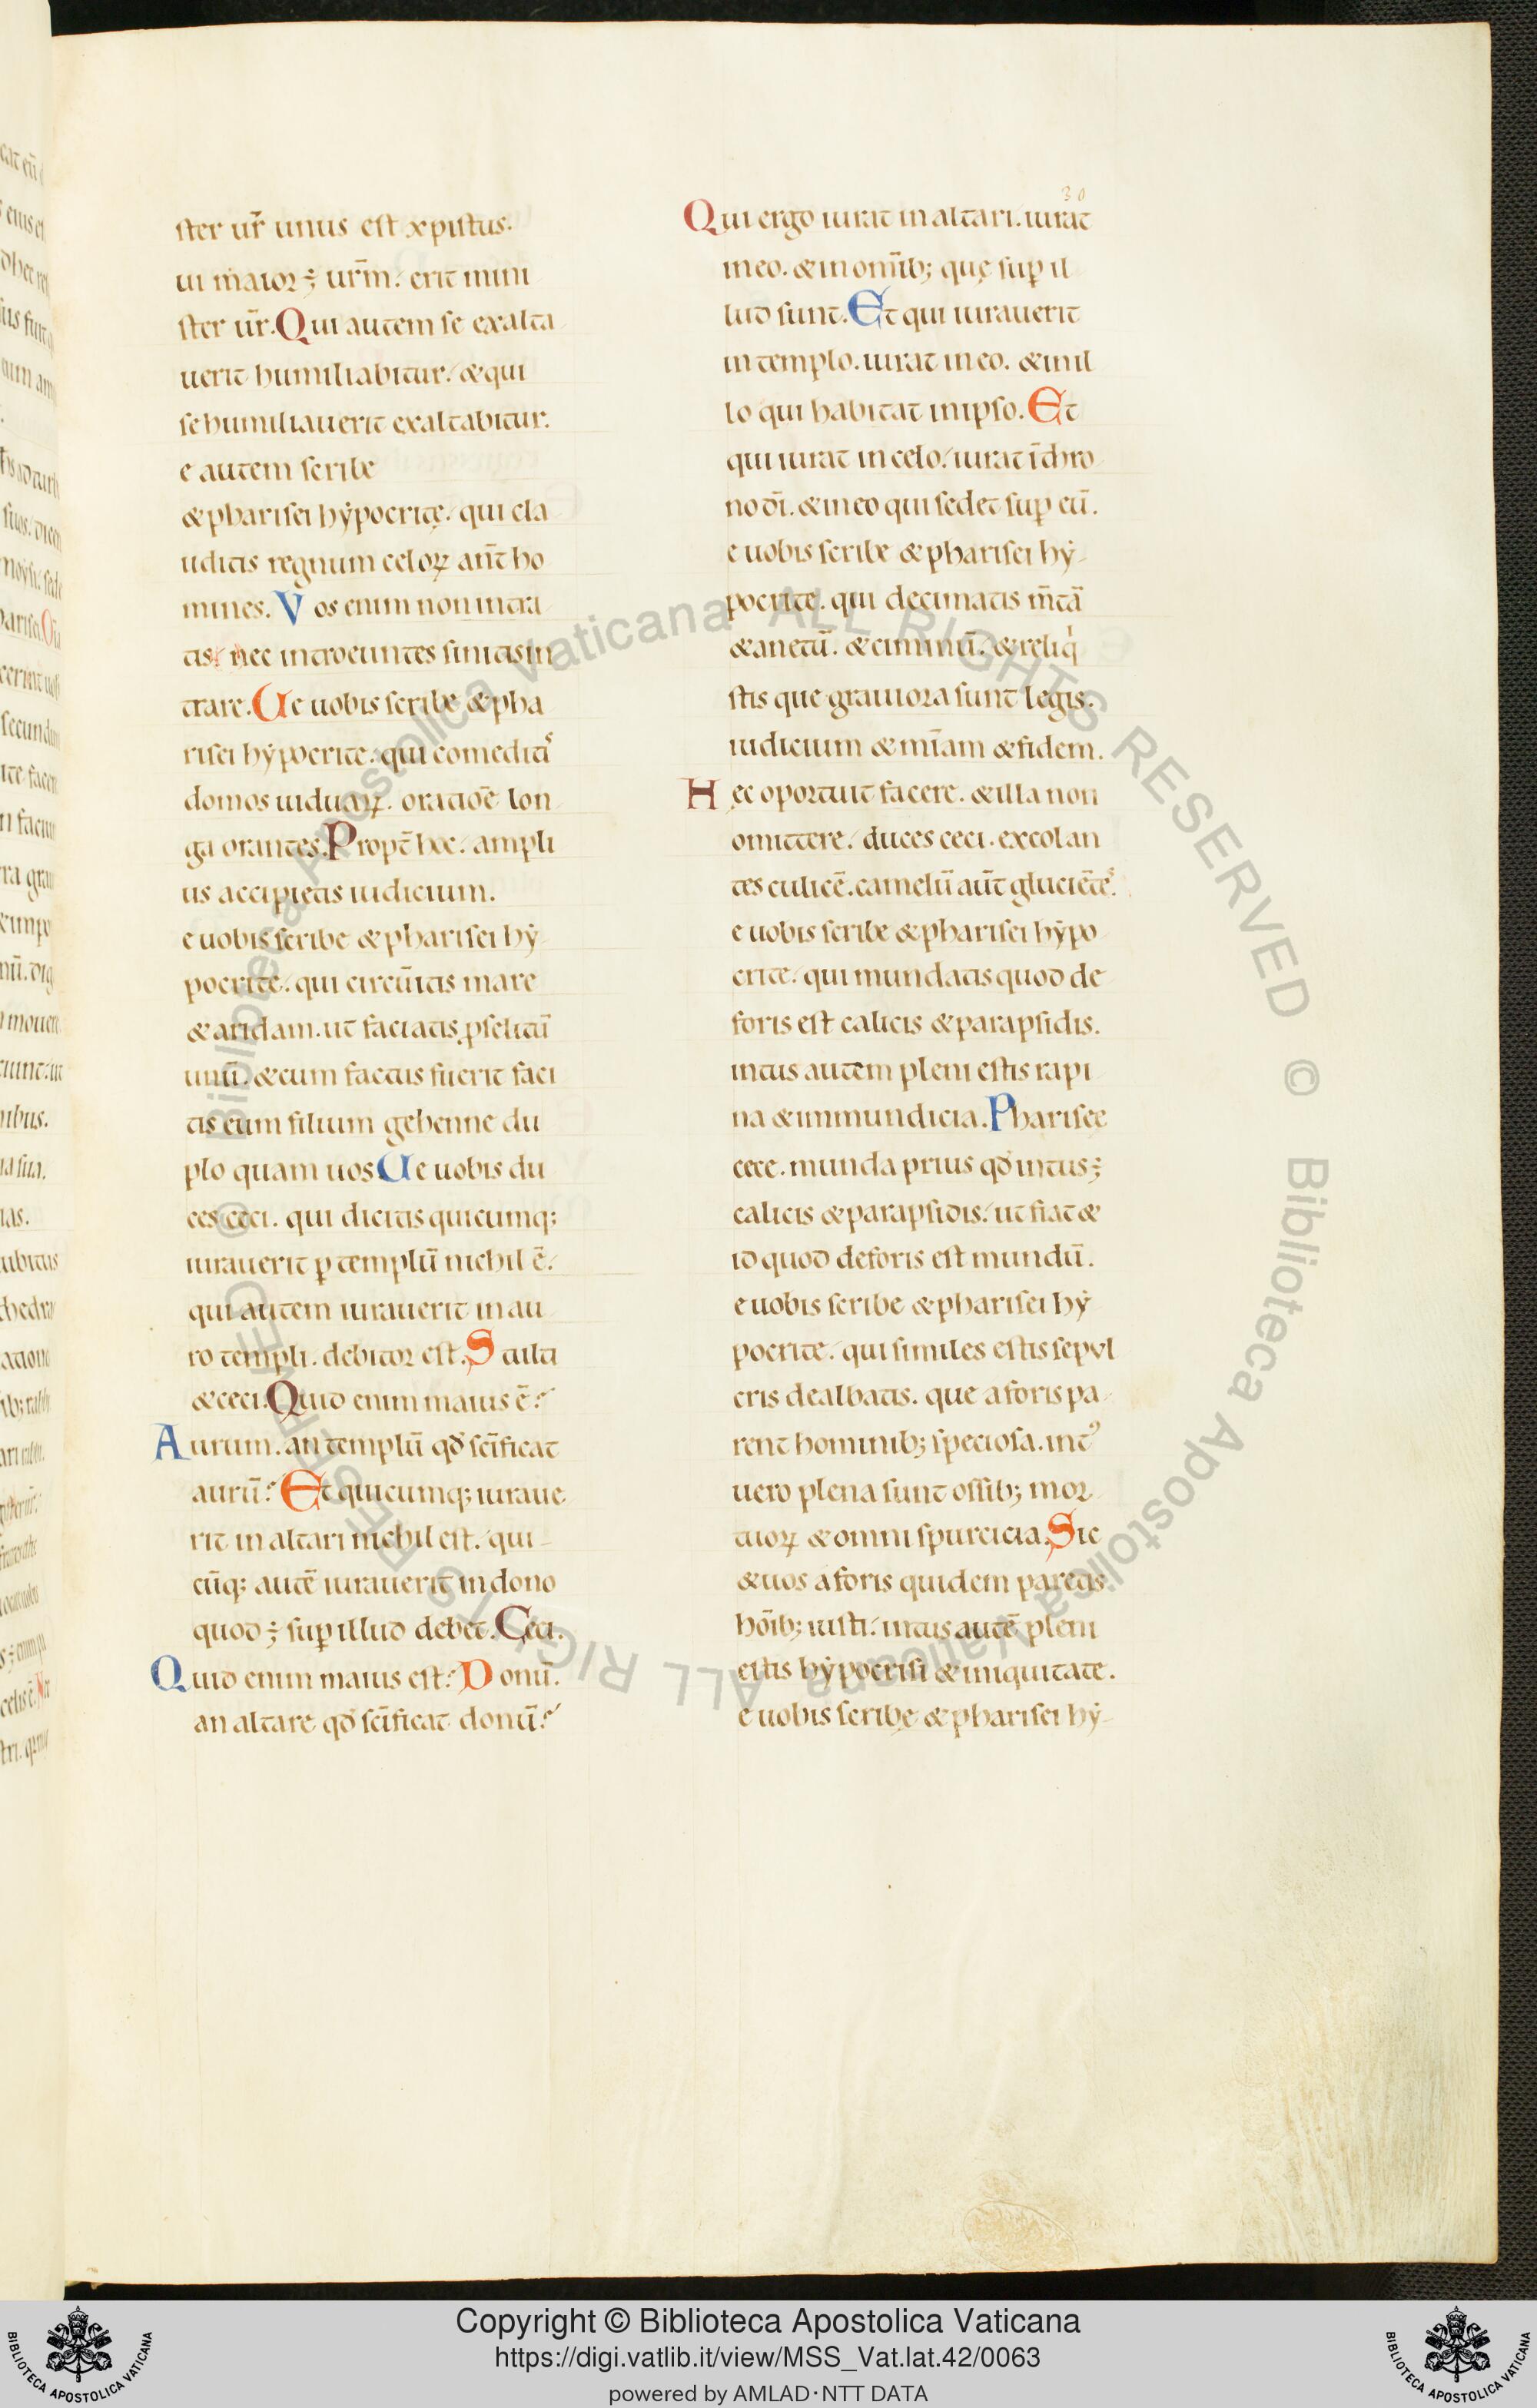 30
ster ur̄ unus est xpistus.
ui maior ÷ ur̄m. erit mini
ster ur̄. Qui autem se exalta
uerit humiliabitur. & qui
se humiliauerit exaltabitur.
e autem scribe
& pharisei hẏpocritę. qui cla
uditis regnum celoꝝ ant̄ ho
mines. Vos enim non intra
tis. nec introeuntes sinitis in
trare. Ue uobis scribe & pha
risei hẏpocrite. qui comeditis
domos uiduaꝝ. oratiōe lon
ga orantes. Propt̄ hoc. ampli
us accipietis iudicium.
e uobis scribe & pharisei hẏ
pocrite. qui circū̄itis mare
& aridam. ut faciatis ꝓselitū
unū. & cum factus fuerit faci
tis eum filium gehenne du
plo quam uos Ue uobis du
ces ceci. qui dicitis quicumq;
iurauerit ꝑ templū nichil ē.
qui autem iurauerit in au
ro templi. debitor est. Stulti
& ceci. Quid enim maius ē?
Aurum. an templū qđ sc̄ificat
aurū? Et quicumq; iuraue
rit in altari nichil est. qui
cūq; autē iurauerit in dono
quod ÷ suꝑ illud debet. Ceci.
Quid enim maius est? Donū.
an altare qđ sc̄ificat donū?
Qui ergo iurat in altari. iurat
in eo. & in omīb; quę suꝑ il
lud sunt. Et qui iurauerit
in templo. iurat in eo. & in il
lo qui habitat in ipso. Et
qui iurat in celo. iurat ī thro
no dī. & in eo qui sedet suꝑ eū.
e uobis scribe & pharisei hẏ
pocrite. qui decimatis m̄tā
& anetū. & ciminū. & reliqͥ
stis que grauiora sunt legis.
iudicium & mīam & fidem.
Hec oportuit facere. & illa non
omittere. duces ceci. excolan
tes culicē. camelū aut̄ glutiētes.
e uobis scribe & pharisei hẏpo
crite. qui mundatis quod de
foris est calicis & parapsidis.
intus autem pleni estis rapi
na & inmundicia. Pharisee
cece. munda prius qđ intus ÷
calicis & parapsidis. ut fiat &
id quod deforis est mundū.
e uobis scribe & pharisei hẏ
pocrite. qui similes estis sepul
cris dealbatis. que aforis pa
rent hominib; speciosa. intꝰ
uero plena sunt ossib; mor
tuoꝝ & omni spurcicia. Sic
& uos aforis quidem paretis
hōib; iusti. intus autē pleni
estis hẏpocrisi & iniquitate.
e uobis scribe & pharisei hẏ
© Biblioteca Apostolica Vaticana ALL RIGHTS RESERVED © Biblioteca Apostolica Vaticana ALL RIGHTS RESERVED
Copyright © Biblioteca Apostolica Vaticana
https://digi.vatlib.it/view/MSS_Vat.lat.42/0063
powered by AMLAD·NTT DATA
BIBLIOTECA APOSTOLICA VATICANA
BIBLIOTECA APOSTOLICA VATICANA